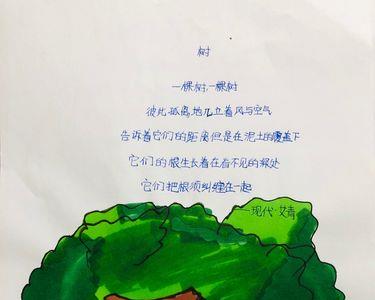 树
一棵树,一棵树
彼此孤离地兀立着风与空气
告诉着它们的距离但是在泥土的覆盖下
它们的根生长着在看不见的深处
它们把根须纠缠在一起
——现代·艾青